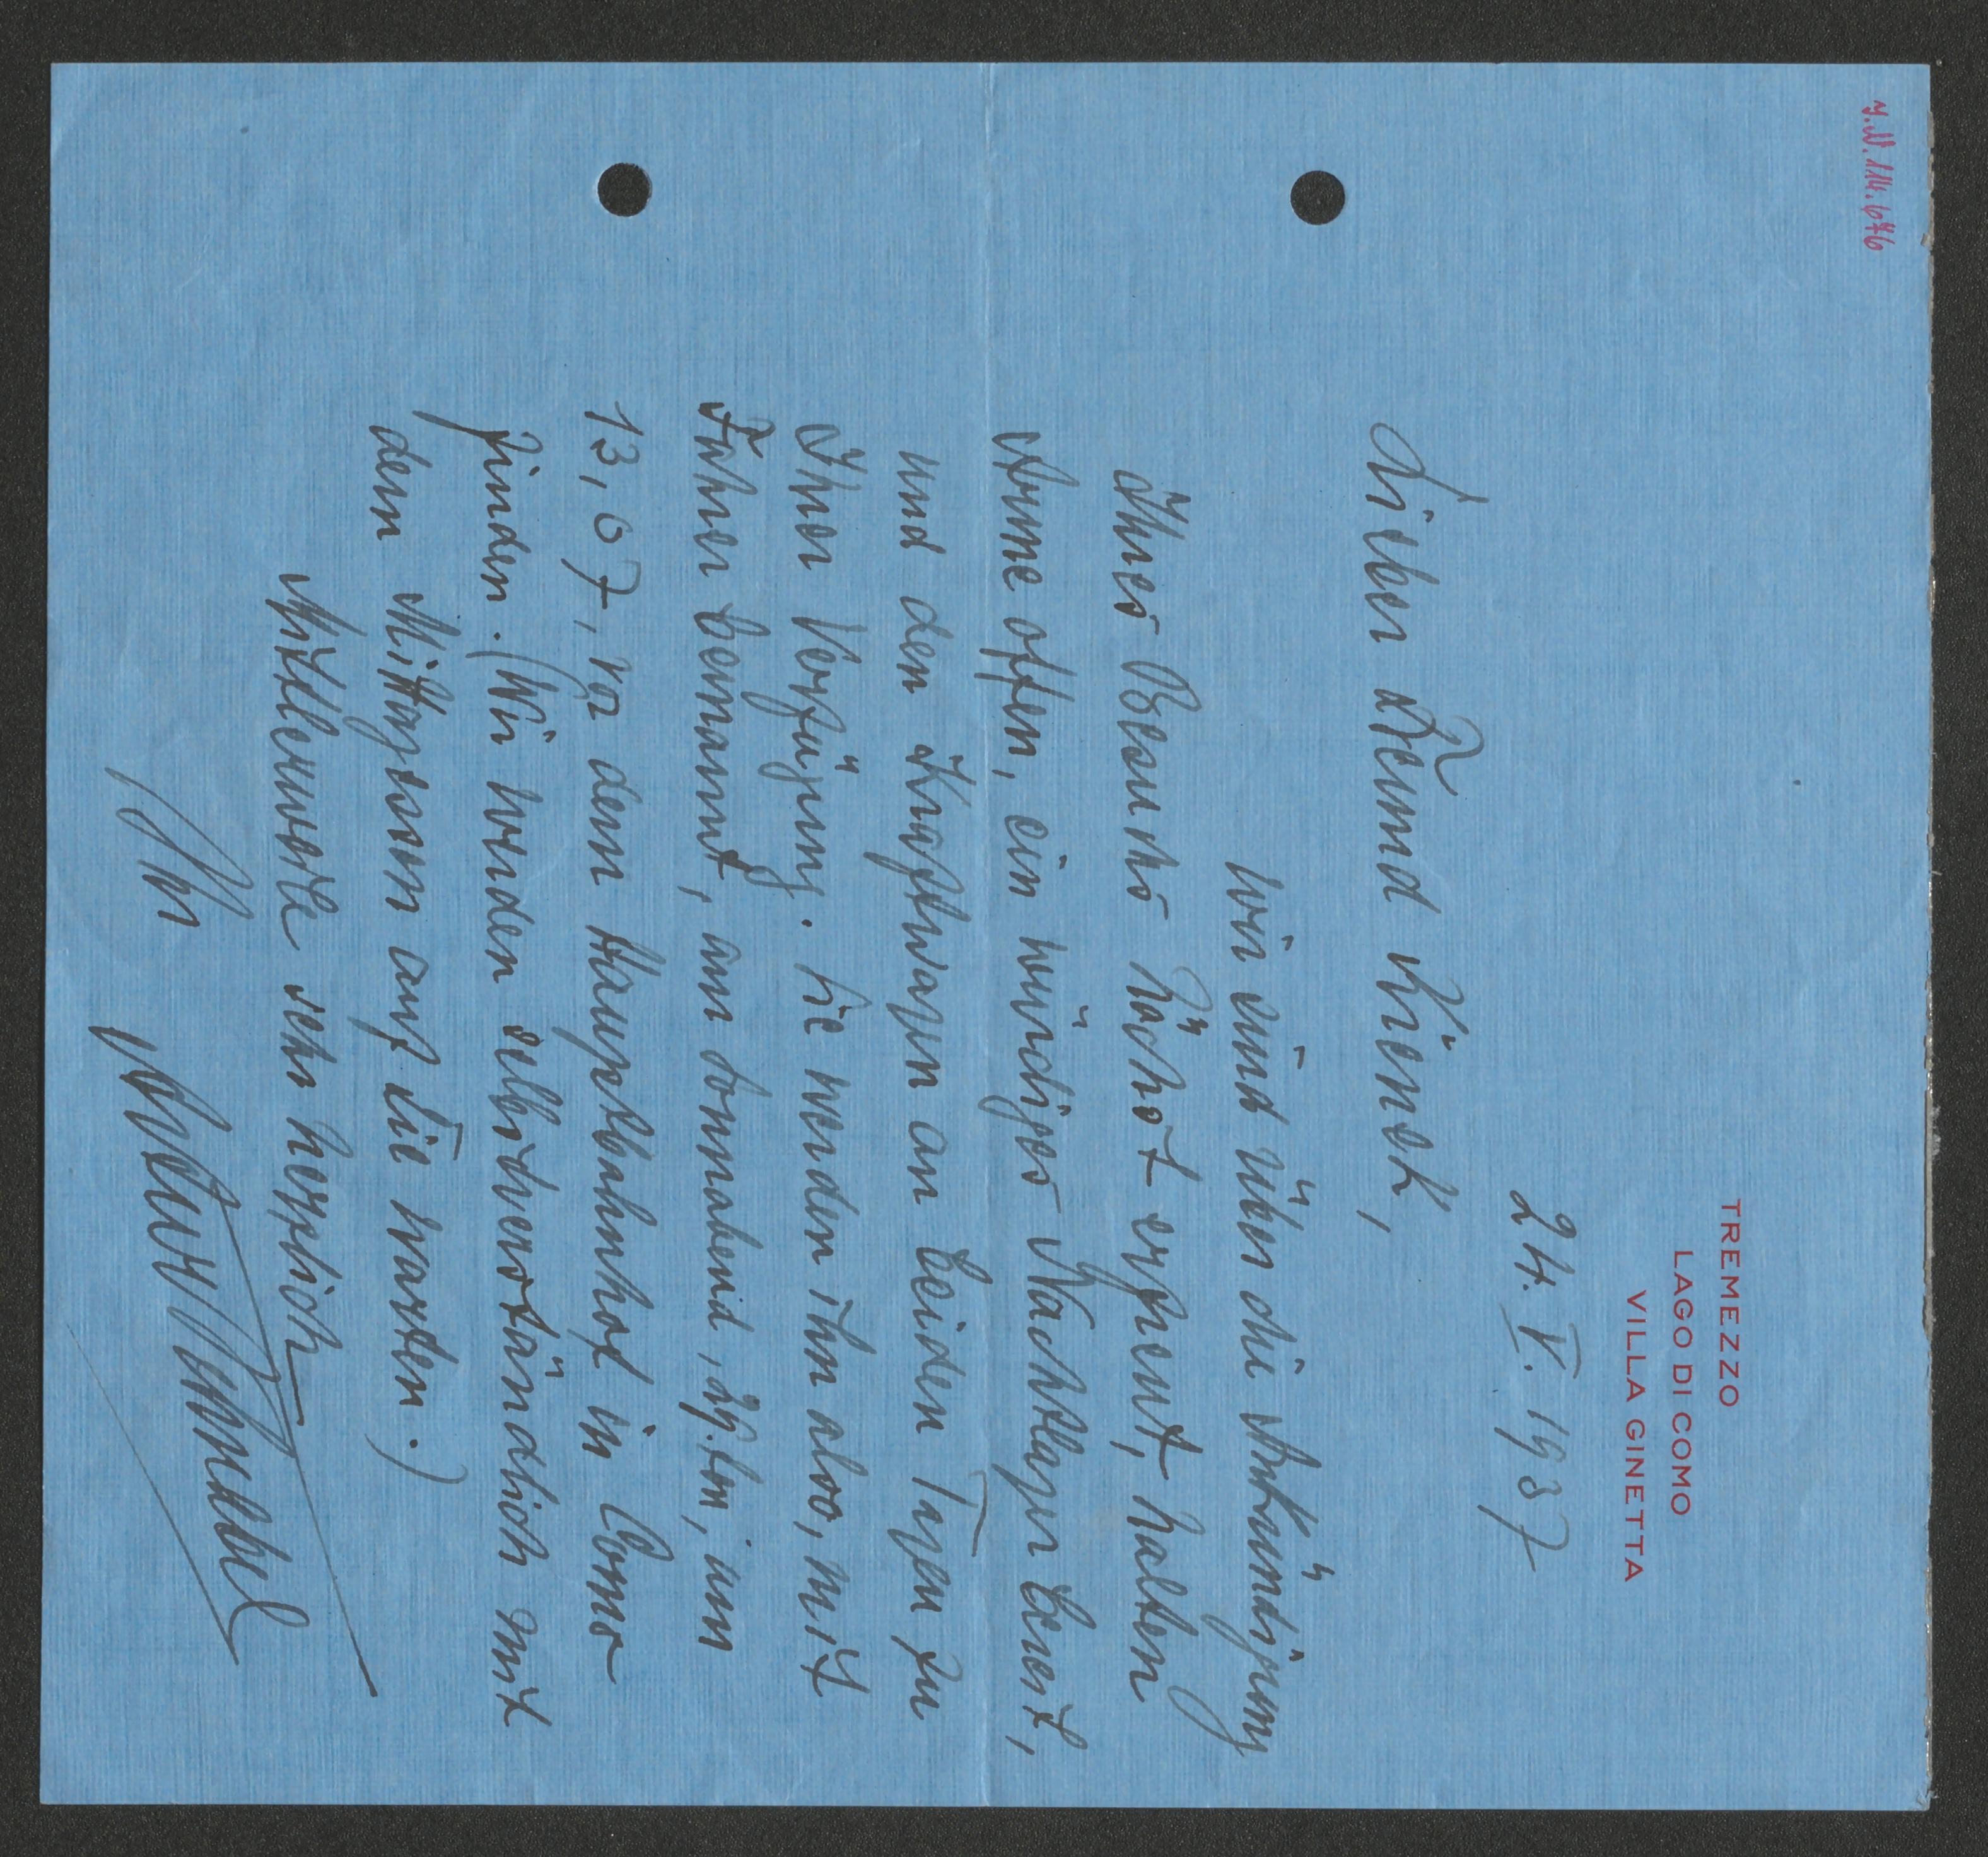 I.N. 114.676
TREMEZZO
LAGO DI COMO
VILLA GINETTA
24. V. 1937
Lieber Freund Kienzl,
wir sind über die Ankündigung
Ihres Besuchs höchst erfreut, halten
Arme offen, ein würdiges Nachtlager bereit,
und den Kraftwagen an beiden Tagen zu
Ihrer Verfügung. Sie werden ihn also, mit
Fahrer bemannt, am Sonnabend, 29. ten, um
13,07, vor dem Hauptbahnhof in Como
finden. (Wir werden selbstverständlich mit
dem Mittagessen auf Sie warten.)
Mittlerweile sehr herzlich
Ihr Artur Schnabel